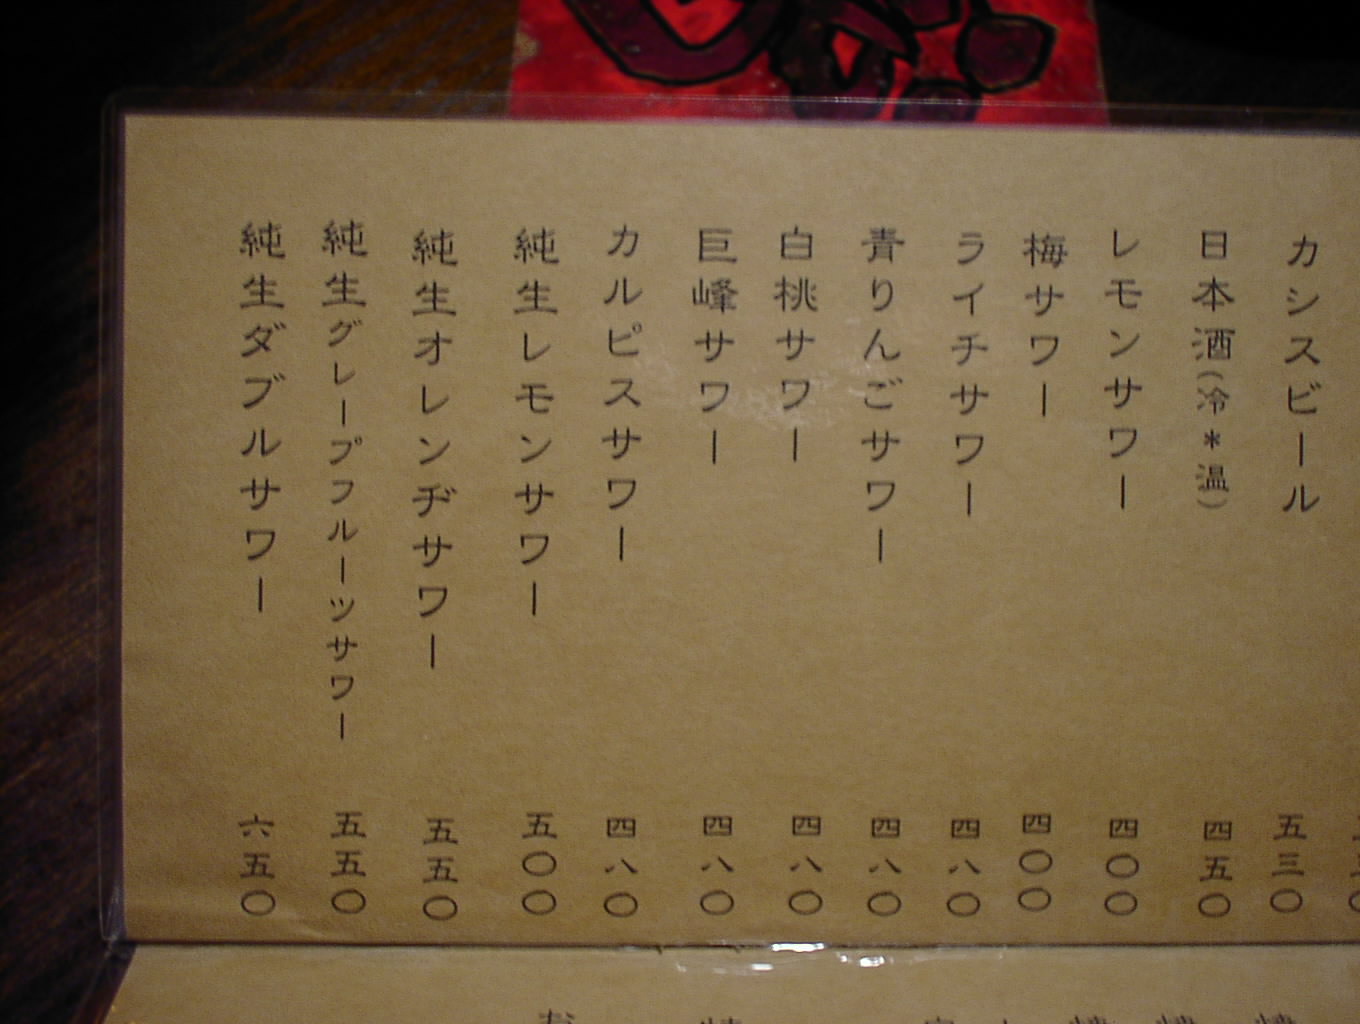 カシスビール 五三〇
日本酒(冷*温) 四五〇
レモンサワー 四〇〇
梅サワー 四〇〇
ライチサワー 四八〇
青りんごサワー 四八〇
白桃サワー 四八〇
巨峰サワー 四八〇
カルピスサワー 四八〇
純生レモンサワー 五〇〇
純生オレンヂサワー 五五〇
純生グレープフルーツサワー 五五〇
純生ダブルサワー 六五〇